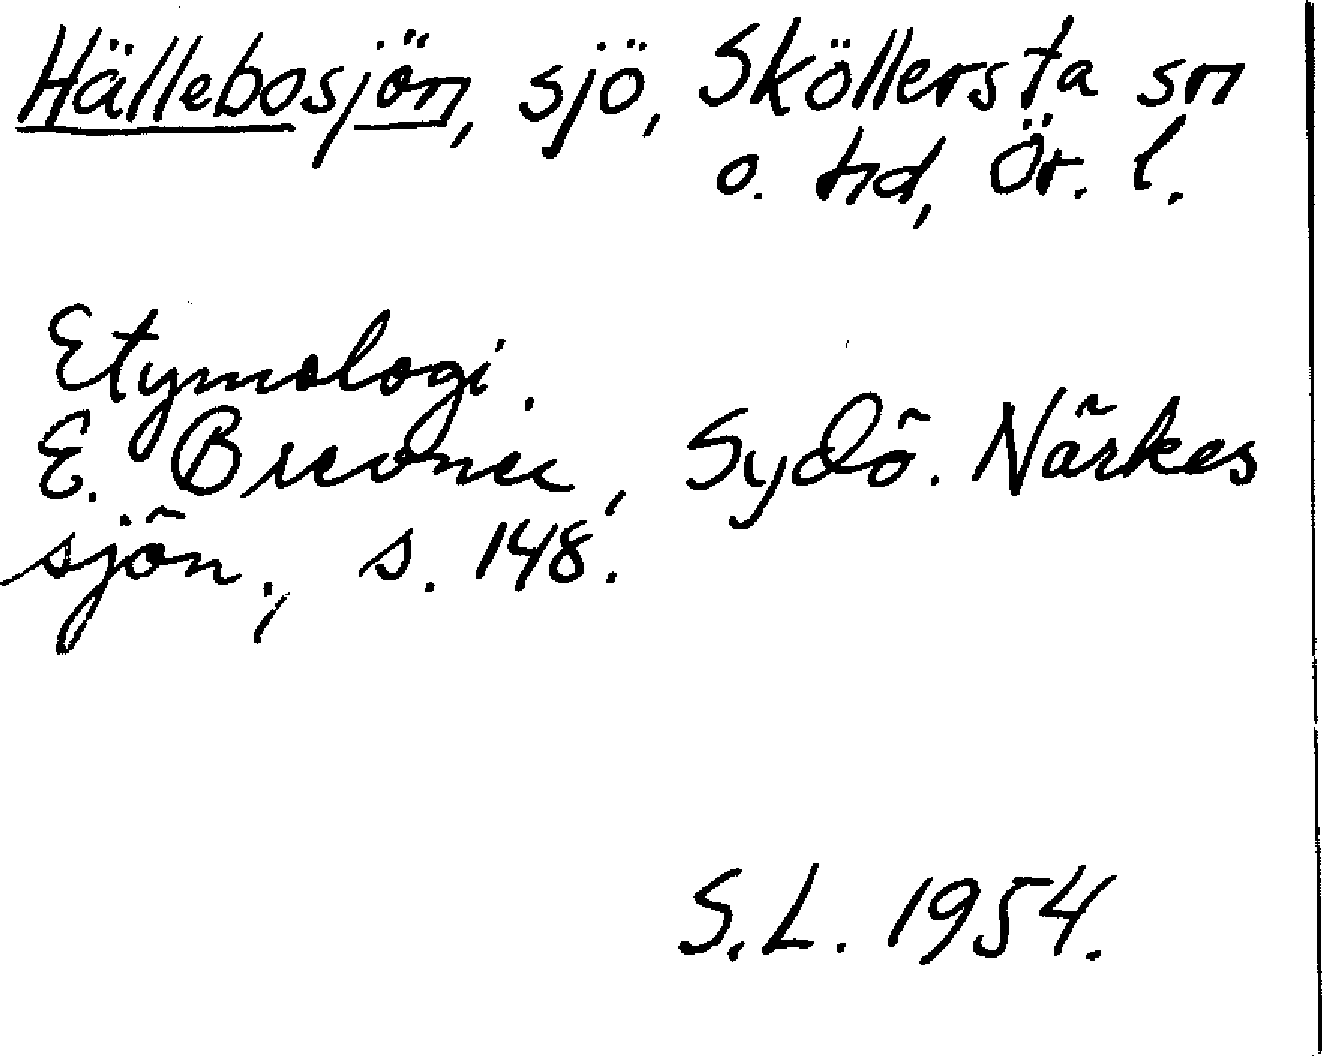 Hällebosjön, sjö, Sköllersta sn
o. hd, Ör. l.
Etymologi.
E. Brevner, Sydö. Närkes
sjön., s. 148.
S.L. 1954.